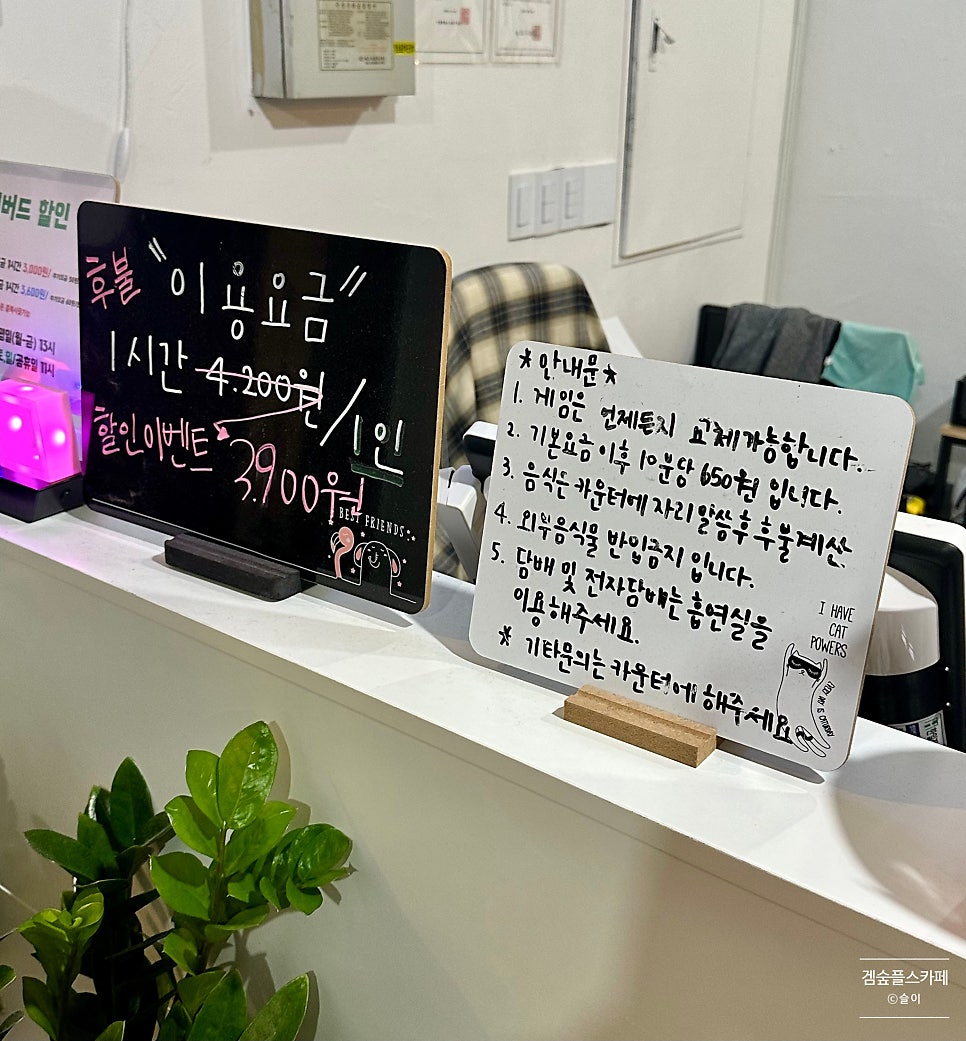 버드 할인
1시간 3,000원/
1시간 3,600원/
(월-금) 13시
공휴일 11시
후불 "이용요금"
1시간 4.200원/1인
할인이벤트 3,900원
BEST FRIENDS
* 안내문 *
1. 게임은 언제든지 교체가능합니다.
2. 기본요금 이후 10분당 650원 입니다.
3. 음식은 카운터에 자리 말씀후 후불계산
4. 외부음식물 반입금지 입니다.
5. 담배 및 전자담배는 흡연실을
이용해주세요.
* 기타문의는 카운터에 해주세요
I HAVE
CAT
POWERS
겜숲플스카페
©슬이